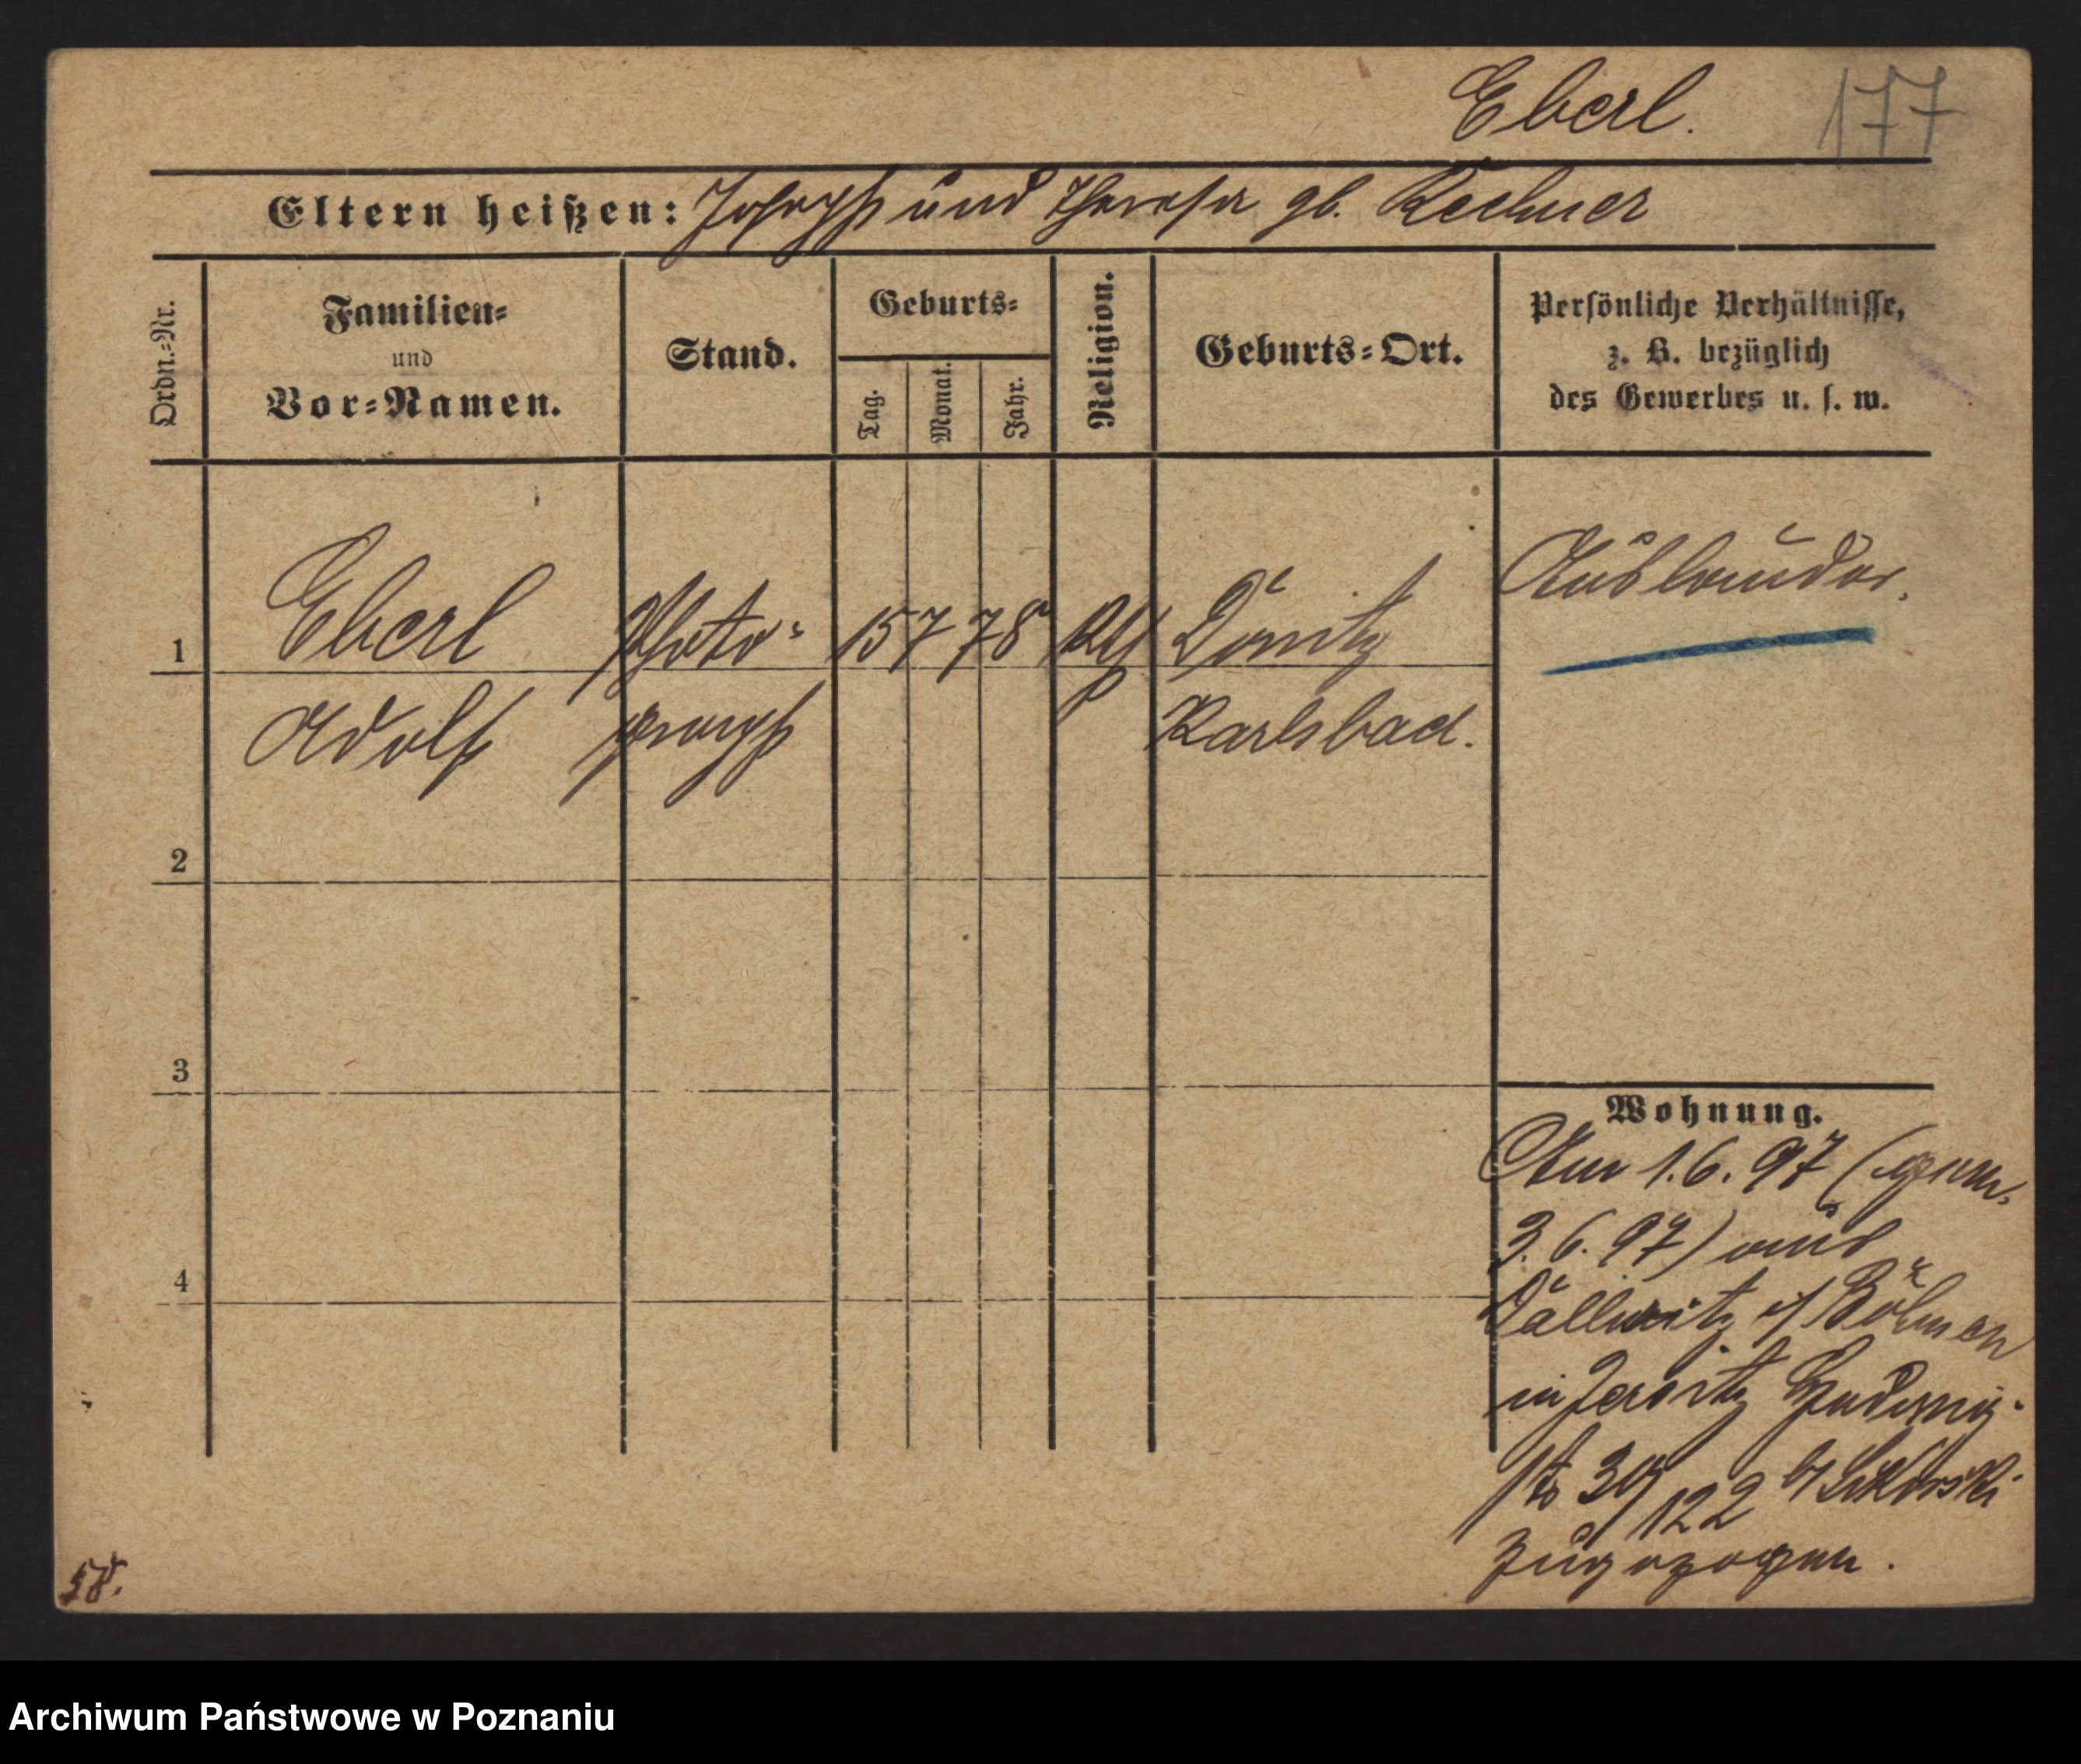 Eberl.
177
Eltern heißen: Joseph und Theresa gb. Lechner
Ordn.-Nr.
Familien-
und
Vor-Namen.
Stand.
Geburts-
Tag.
Monat.
Jahr.
Religion.
Geburts-Ort.
Persönliche Verhältnisse,
z. B. bezüglich
des Gewerbes u. s. w.
1 Eberl Photo- 15 7 78
Ausländer.
Adolf graph Karlsbad.
2
3
4
Wohnung.
Am 1.6.97 (gem.
3.6.97) aus
i/Böhmen
in Jersitz Hedwig-
str 39/122 b/ Sikorski
zugezogen.
Archiwum Państwowe w Poznaniu